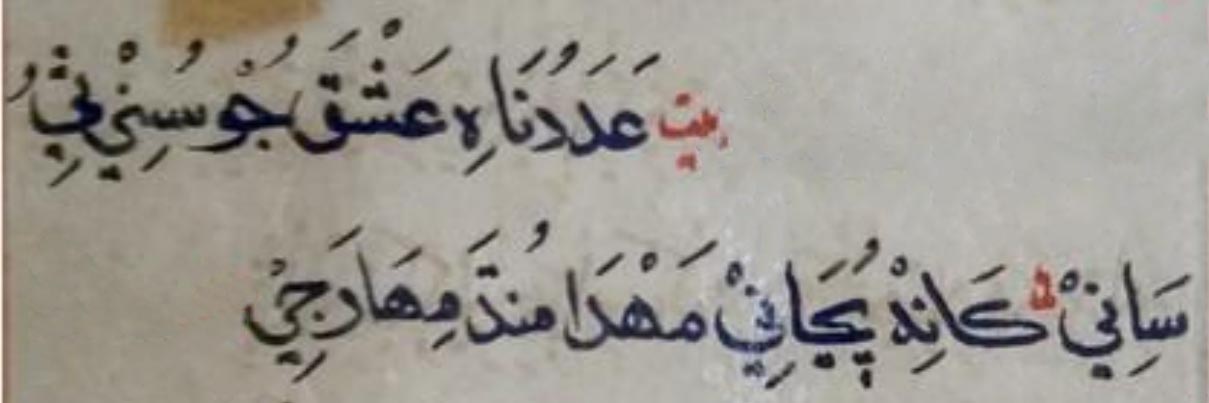 بيت عَدَدُنَاهِ عَشْقَ جُوْ سُنِيْ ثِيُ
سَانِيْ كَانِهْ پُڇَانِيْ مَهْدَا مُنْدَ مِهَارَجِيْ